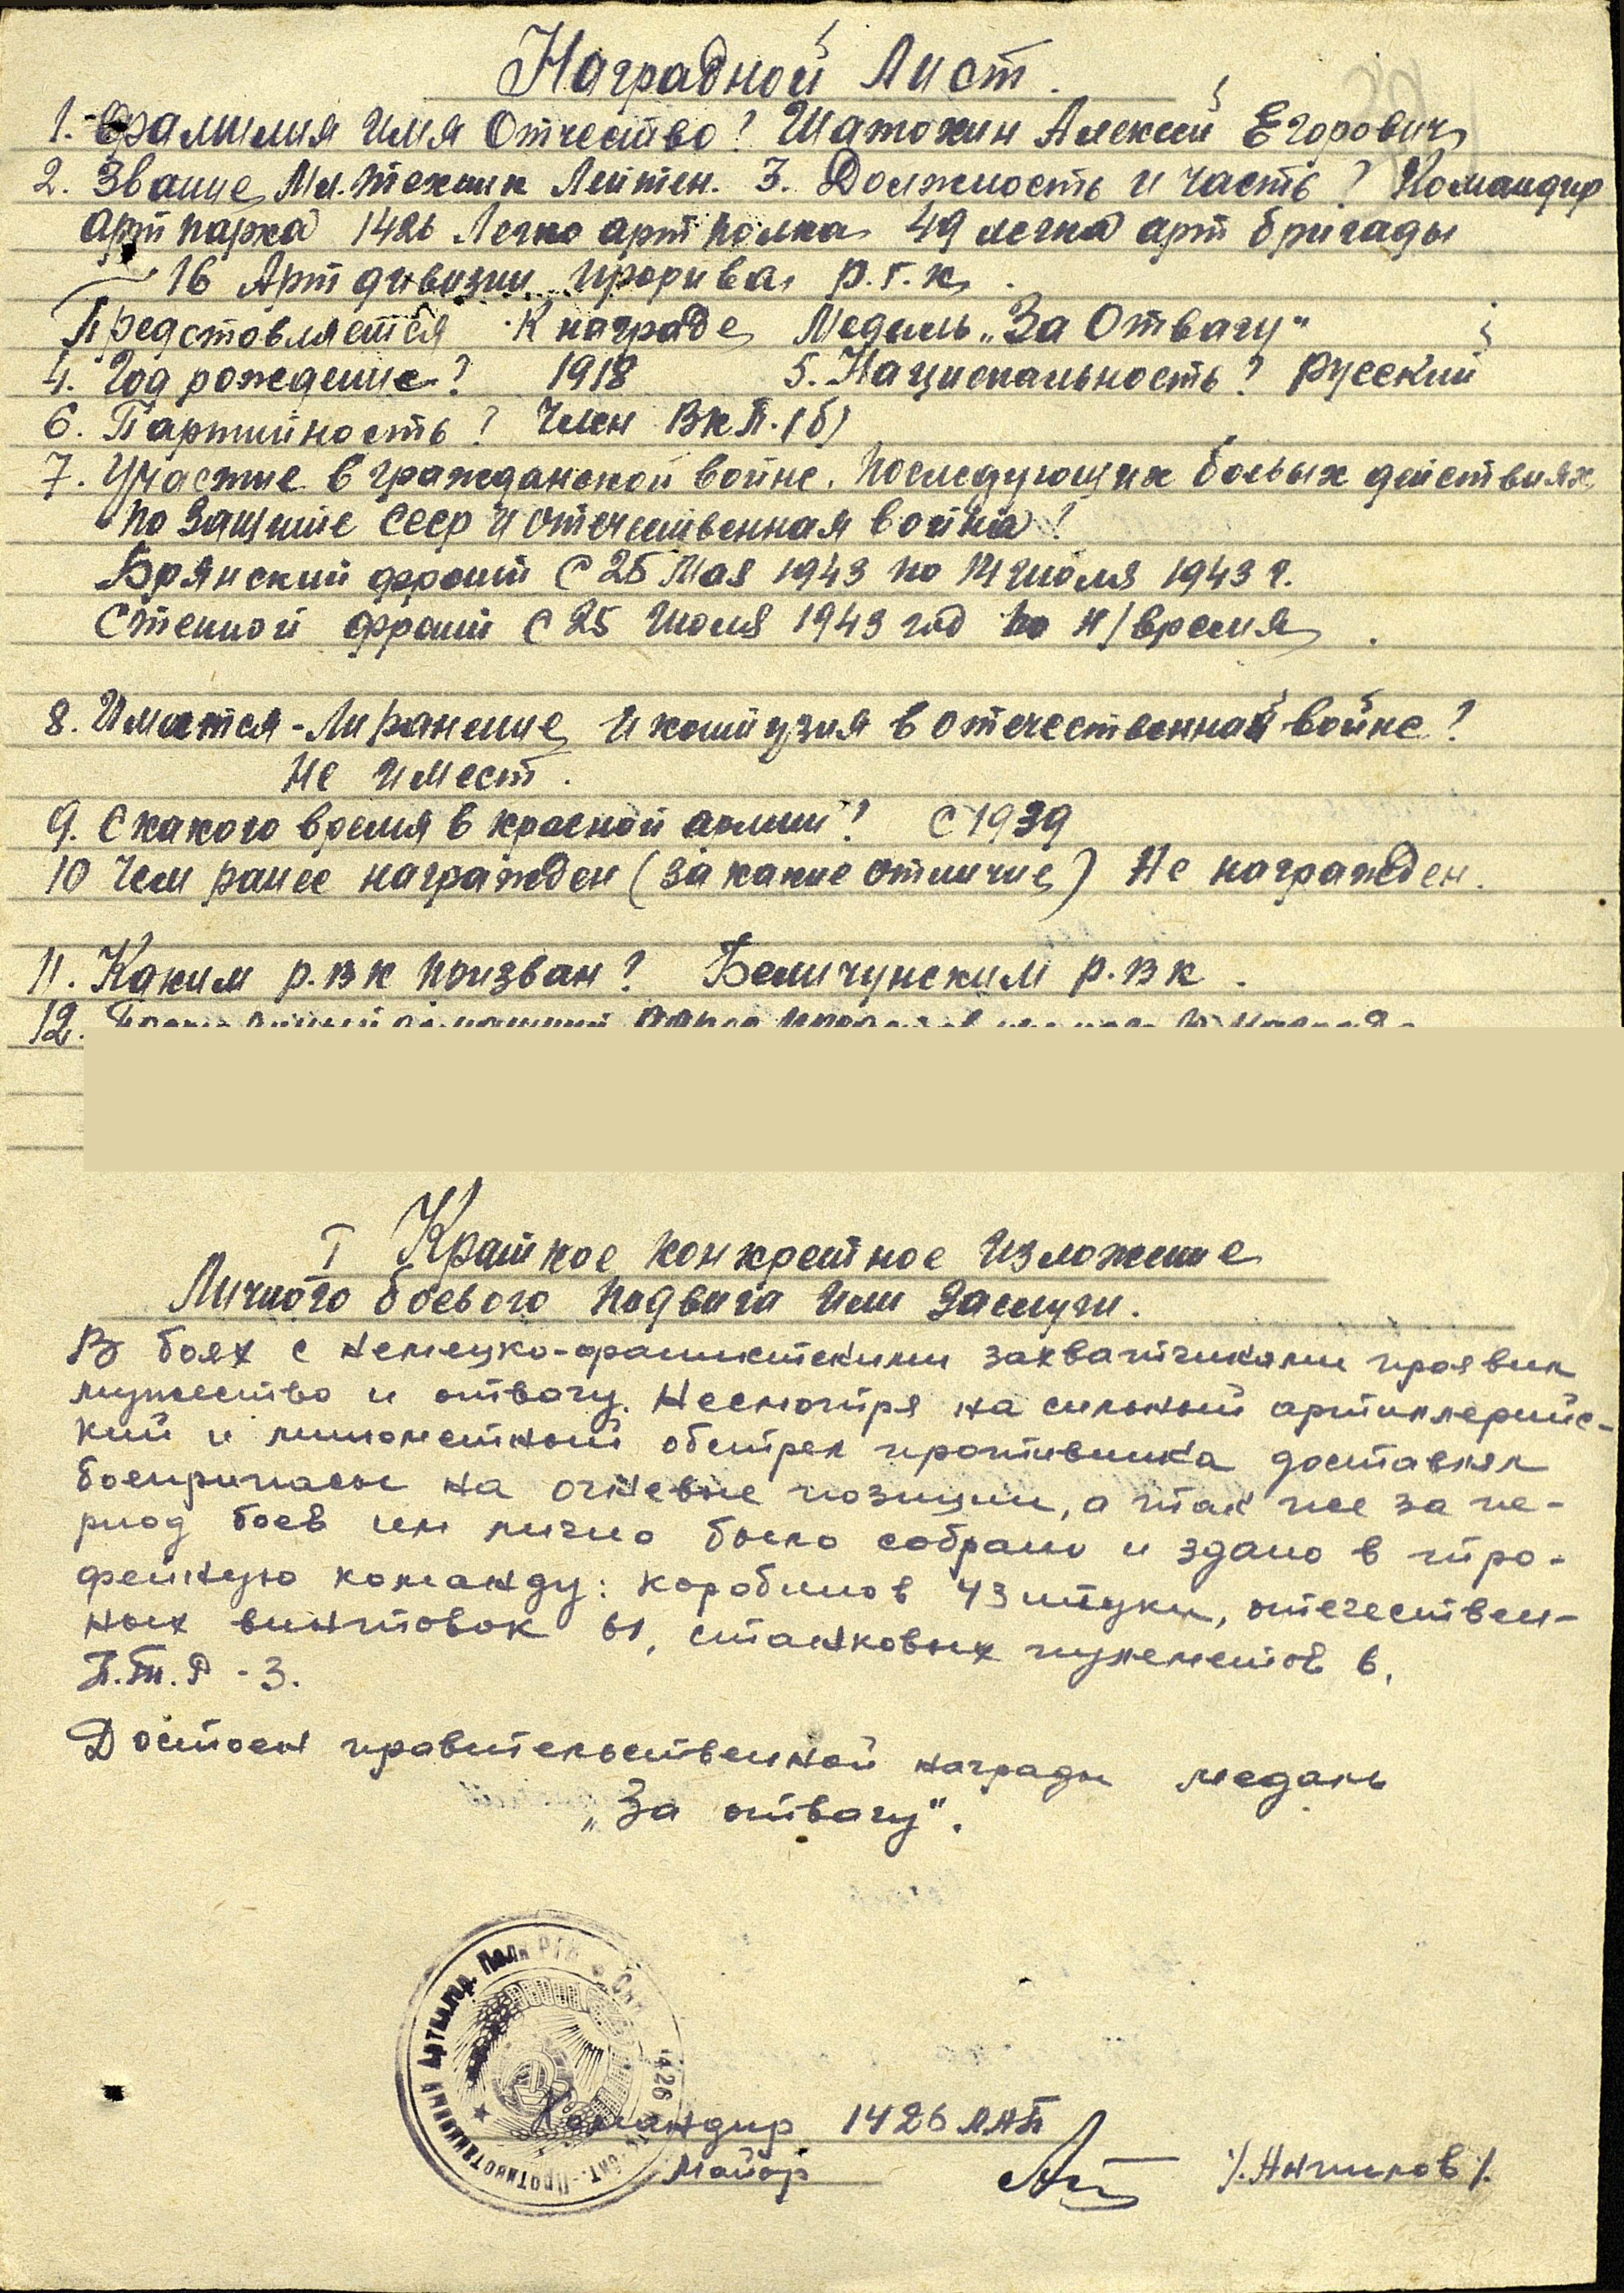 Наградной Лист.
1. Фамилия Имя Отчество? Шатохин Алексей Егорович
2. Звание Мл. техник Лейтен. 3. Должность и часть? Командир
Арт парка 1426 Легко арт полка 49 легка арт бригады
16 Арт дивизии прорива р.г.к.
Предстовляется К награде Медаль „За Отвагу"
4. Год рождение? 1918 5. Национальность? русский
6. Партийность? Член ВКП.(б)
7. Участие в гражданской войне. Последующих боевых действиях
по защите СССР и отечественная война?
Брянский фронт с 25 Мая 1943 по 14 Июля 1943 г.
Степной фронт с 25 Июля 1943 год по н/время.
8. Имеется-Ли ранение и контузия в отечественной войне?
Не имеет.
9. С какого время в красной армии? С 1939
10 Чем ранее награжден (за какие отличие) Не награжден.
11. Каким р.в к призван? р.в к.
12.
I Краткое конкретное изложение
Личного боевого подвига или заслуги.
В боях с немецко-фашистскими захватчиками проявил
мужество и отвагу. Несмотря на сильный артиллерийс-
кий и минометный обстрел противника доставлял
боеприпасы на огневые позиции, а так же за пе-
риод боев им лично было собрано и здано в тро-
фейную команду: карабинов 43 штуки, отечествен-
ных винтовок 61, станковых пулеметов 6,
П.Т.Р - 3.
Достоен правительственной награды медаль
„За отвагу".
Противотанковый Артиллер. Полк РГК 1426
Командир 1426 ЛАП
Майор /. Анпилов /.